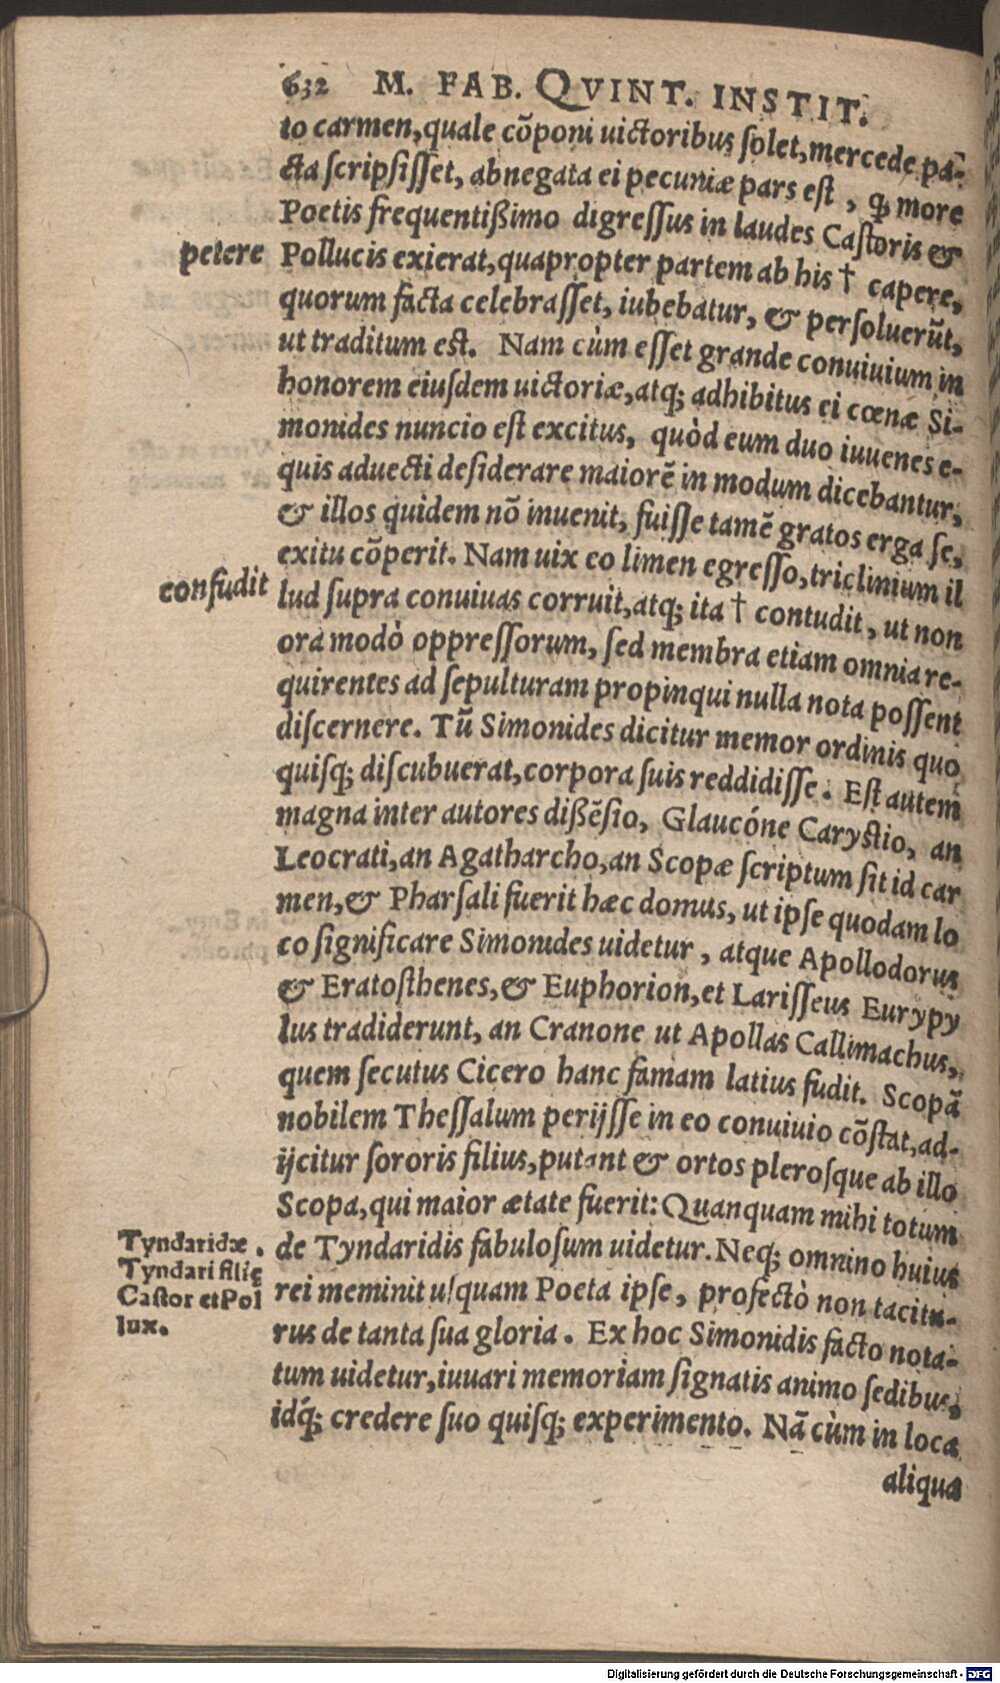 632 M. FAB. QVINT. INSTIT.
to carmen, quale cõponi uictoribus ſolet, mercede pa-
cta ſcripſiſſet, abnegata ei pecuniæ pars eſt, ꝙ more
Poetis frequentißimo digreſſus in laudes Caſtoris &
petere
Pollucis exierat, quapropter partem ab his † capere,
quorum facta celebraſſet, iubebatur, & perſoluerũt,
ut traditum eſt. Nam cùm eſſet grande conuiuium in
honorem eiuſdem uictoriæ, atq; adhibitus ei cœnæ Si-
monides nuncio eſt excitus, quòd eum duo iuuenes e-
quis aduecti deſiderare maiorẽ in modum dicebantur,
& illos quidem nõ inuenit, fuiſſe tamẽ gratos erga ſe,
exitu cõperit. Nam uix eo limen egreſſo, triclinium il
confudit
lud ſupra conuiuas corruit, atq; ita † contudit, ut non
ora modò oppreſſorum, ſed membra etiam omnia re-
quirentes ad ſepulturam propinqui nulla nota poſſent
diſcernere. Tũ Simonides dicitur memor ordinis quo
quiſq; diſcubuerat, corpora ſuis reddidiſſe. Eſt autem
magna inter autores dißẽſio, Glaucóne Caryſtio, an
Leocrati, an Agatharcho, an Scopæ ſcriptum ſit id car
men, & Pharſali fuerit hæc domus, ut ipſe quodam lo
co ſignificare Simonides uidetur, atque Apollodorus
& Eratoſthenes, & Euphorion, et Lariſſeus Eurypy
lus tradiderunt, an Cranone ut Apollas Callimachus,
quem ſecutus Cicero hanc famam latius fudit. Scopã
nobilem Theſſalum perijſſe in eo conuiuio cõſtat, ad-
ijcitur ſororis filius, putant & ortos pleroſque ab illo
Scopa, qui maior ætate fuerit: Quanquam mihi totum
Tyndaridæ.
Tyndari filię
Caſtor et Pol
lux.
de Tyndaridis fabuloſum uidetur. Neq; omnino huius
rei meminit uſquam Poeta ipſe, profectò non tacitu-
rus de tanta ſua gloria. Ex hoc Simonidis facto nota-
tum uidetur, iuuari memoriam ſignatis animo ſedibus,
idq́; credere ſuo quiſq; experimento. Nã cùm in loca
aliqua
Digitalisierung gefördert durch die Deutsche Forschungsgemeinschaft - DFG